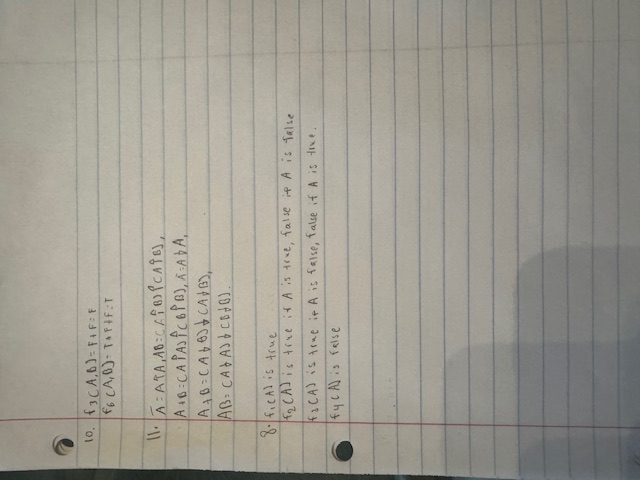 10. f₃(A,B)= F+F=F
f₆(A,B)= T+F+F=T
11. Ā = A↑A, AB=(A↑B)↑(A↑B),
A+B=(A↑A)↑(B↑B), Ā=A↓A,
A+B=(A↓B)↓(A↓B),
AB=(A↓A)↓(B↓B).
8. f₁(A) is true
f₂(A) is true if A is true, false if A is false
f₃(A) is true if A is false, false if A is true.
f₄(A) is false